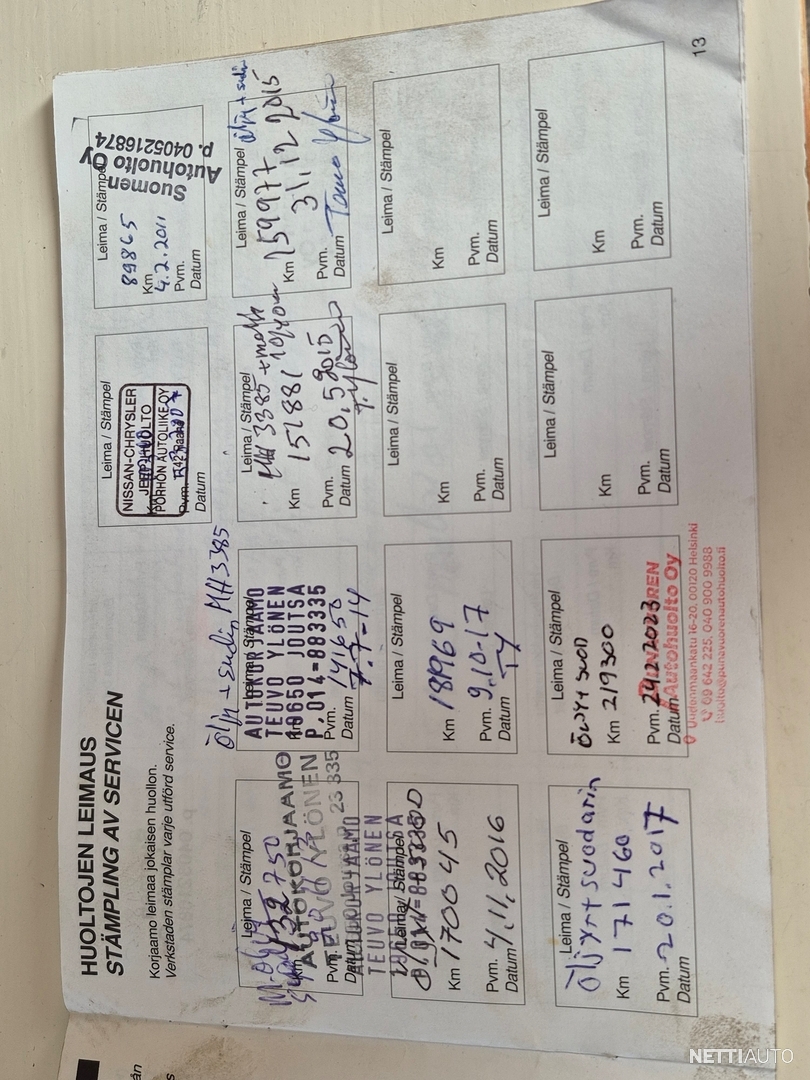 HUOLTOJEN LEIMAUS
STÄMPLING AV SERVICEN
Korjaamo leimaa jokaisen huollon.
Verkstaden stämplar varje utförd service.
Leima / Stämpel
NISSAN-CHRYSLER
JEEP HUOLTO
PÖRHÖN AUTOLIIKE OY
Pvm.
Datum
Leima / Stämpel
Suomen
Autohuolto Oy
p. 0405216874
89865
Km
4.2.2011
Pvm.
Datum
Leima / Stämpel
Km
AUTOKORJAAMO
Pvm.
Datum
Öljy + sudin MH3385
Leima / Stämpel
AUTOKORJAAMO
TEUVO YLÖNEN
19650 JOUTSA
P. 014-883335
Pvm. 141650
Datum 7.7-14
Leima / Stämpel
MH 3385 +
10/40
Km 151881
Pvm. 20.5.2015
Datum T. Ylönen
öljy + sudin
Leima / Stämpel
Km 159977
Pvm. 31.12 2015
Datum
Leima / Stämpel
AUTOKORJAAMO
TEUVO YLÖNEN
19650 JOUTSA
Km 170045
Pvm. 4.11.2016
Datum
Leima / Stämpel
Km 181969
Pvm. 9.10-17
Datum TY
Leima / Stämpel
Km
Pvm.
Datum
Leima / Stämpel
Km
Pvm.
Datum
Leima / Stämpel
Öljyt+suodatin
Km 171460
Pvm. 20.1.2017
Datum
Leima / Stämpel
ÖLJYT+SUOD
Km 219300
Pvm. 24.2.2023
Datum
Autohuolto Oy
Uudenmaankatu 16-20, 00120 Helsinki
09 642 225, 040 900 9988
huolto@punavuorenautohuolto.fi
Leima / Stämpel
Km
Pvm.
Datum
Leima / Stämpel
Km
Pvm.
Datum
13
NETTIAUTO